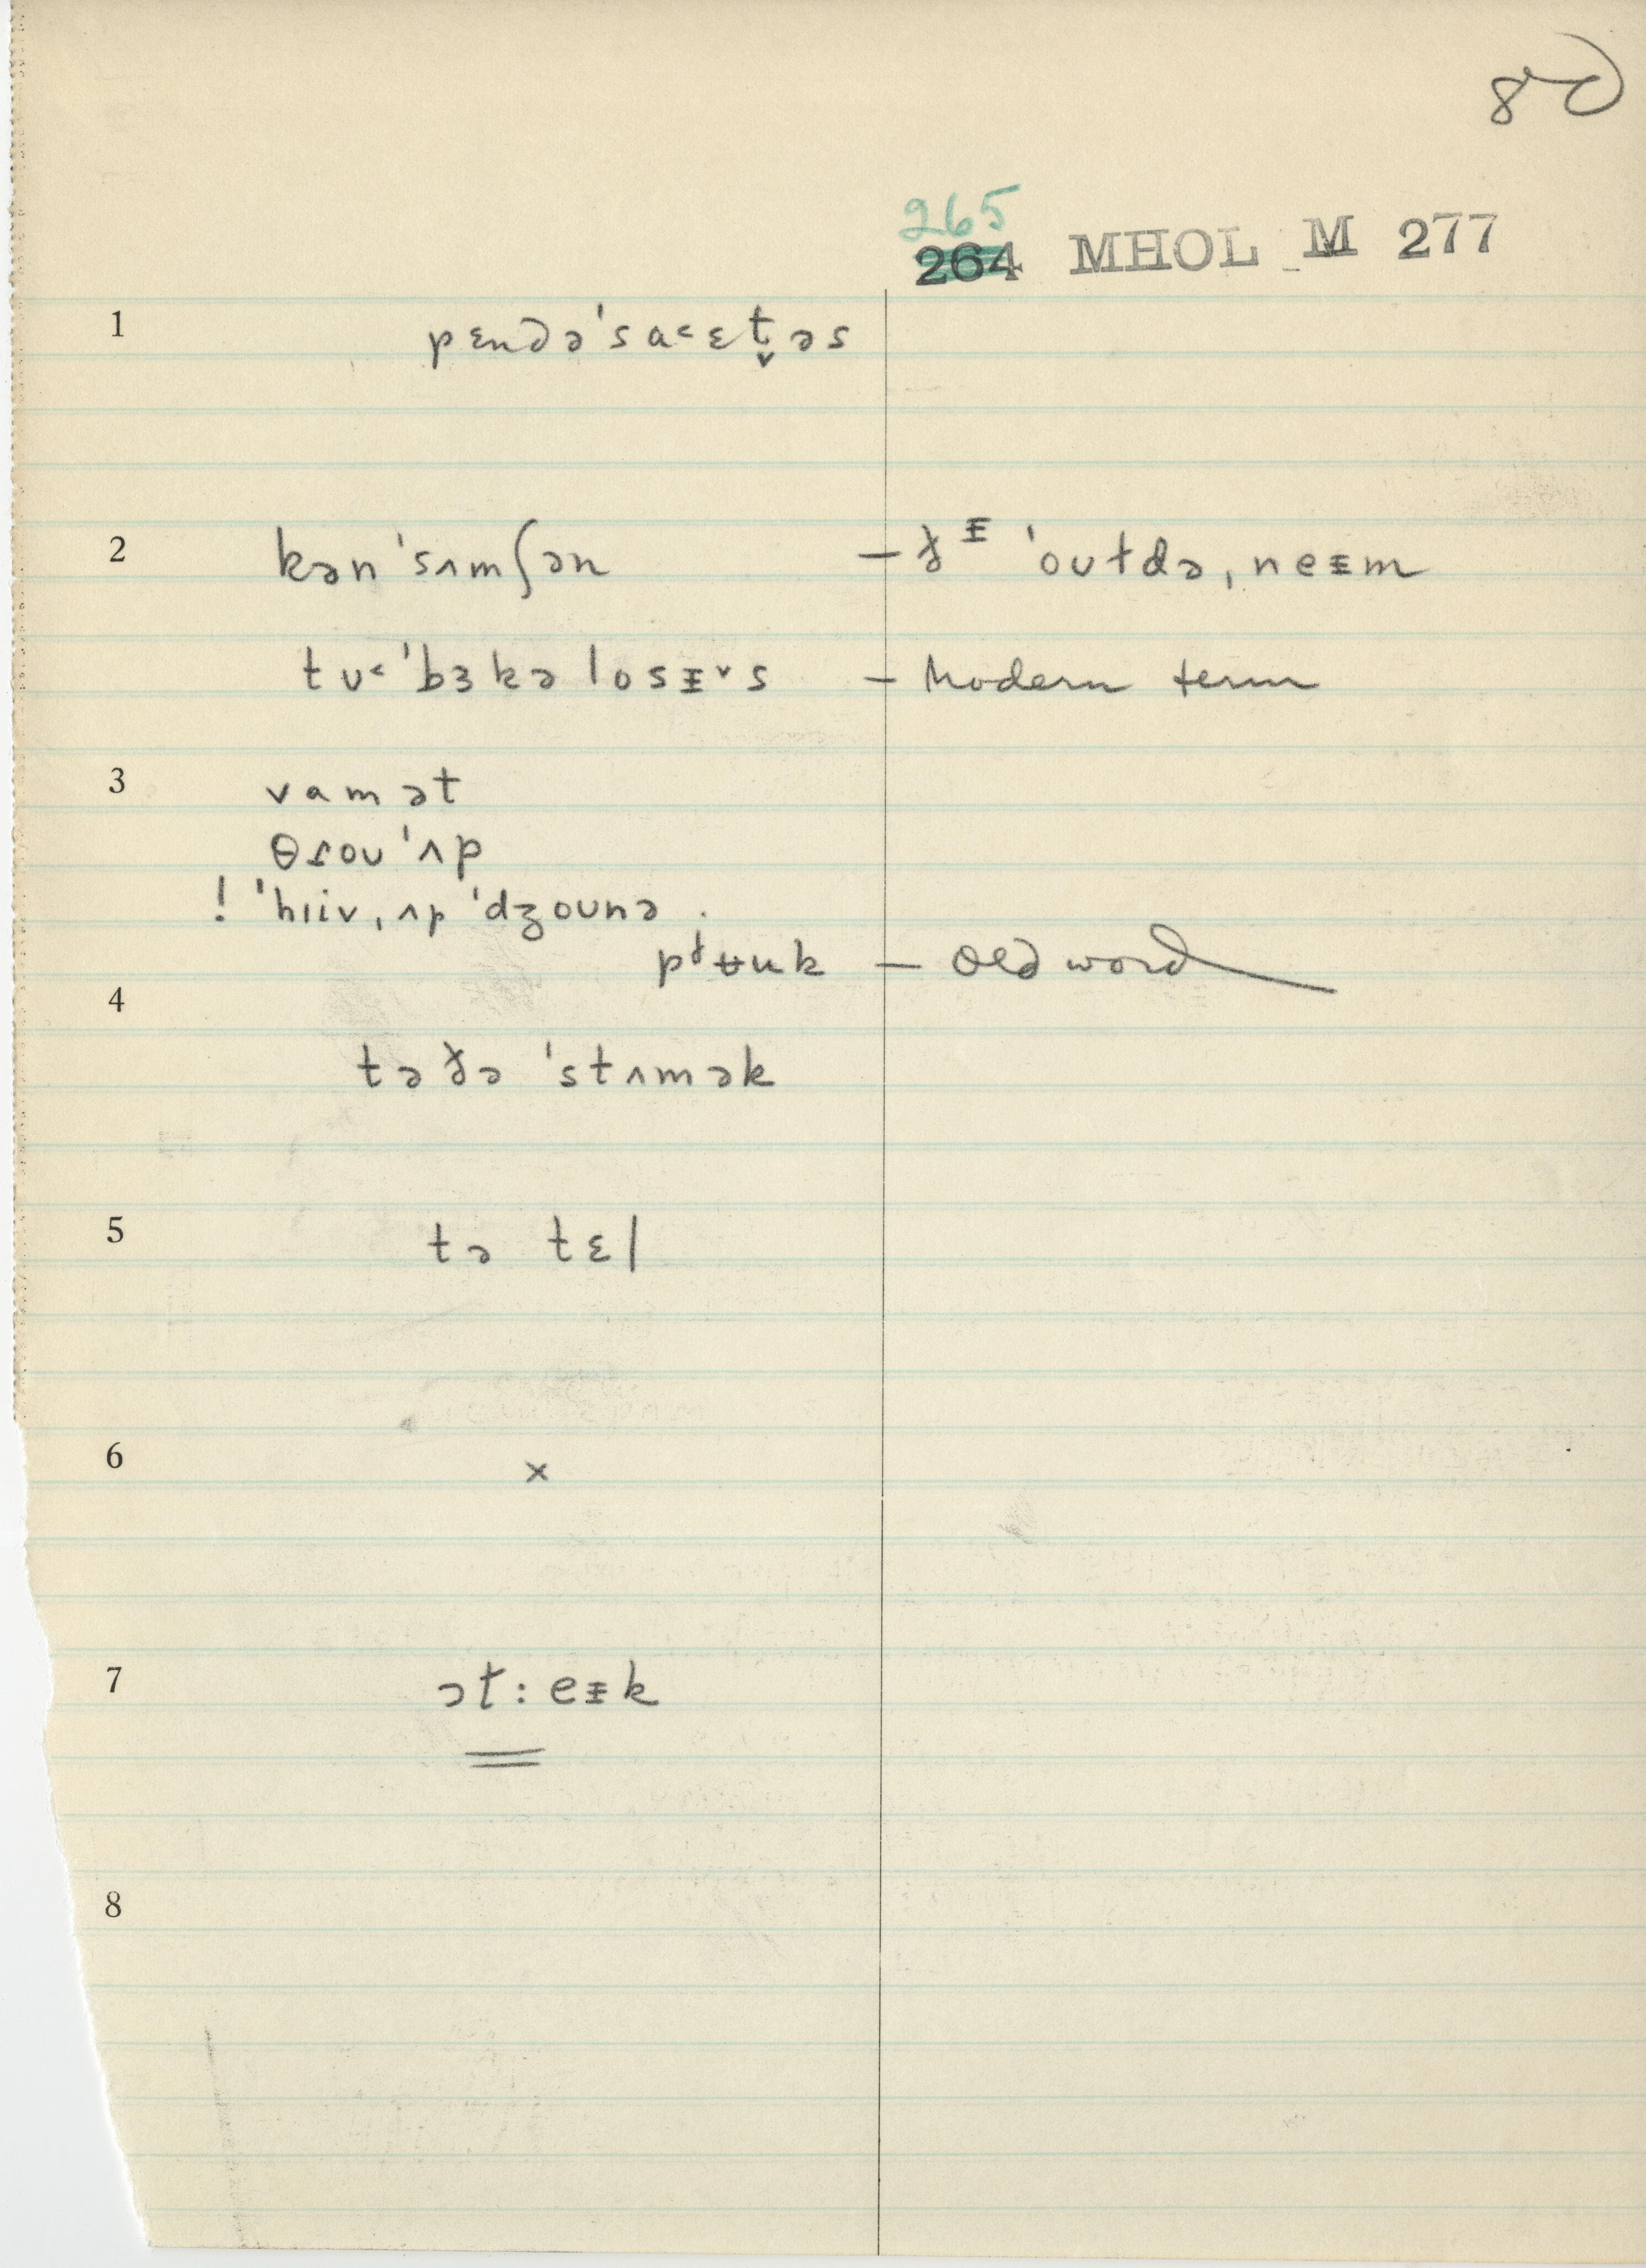 80
265
264 MHOL M 277
1 pɛndə'sa˂ɛt̬əs
2 kən'sʌmʃən – ðᵻ 'oʊldə, neᵻm
tʊ˂'bɜkəlosᵻ˅s – Modern term
3 vamət
θɾoʊ'ʌp
! 'hɪiv, ʌp 'dʒoʊnə .
pɨʉuk – Old word
4 tə ðə 'stʌmək
5 tə tɛl
6 x
7 ət:eᵻk
8